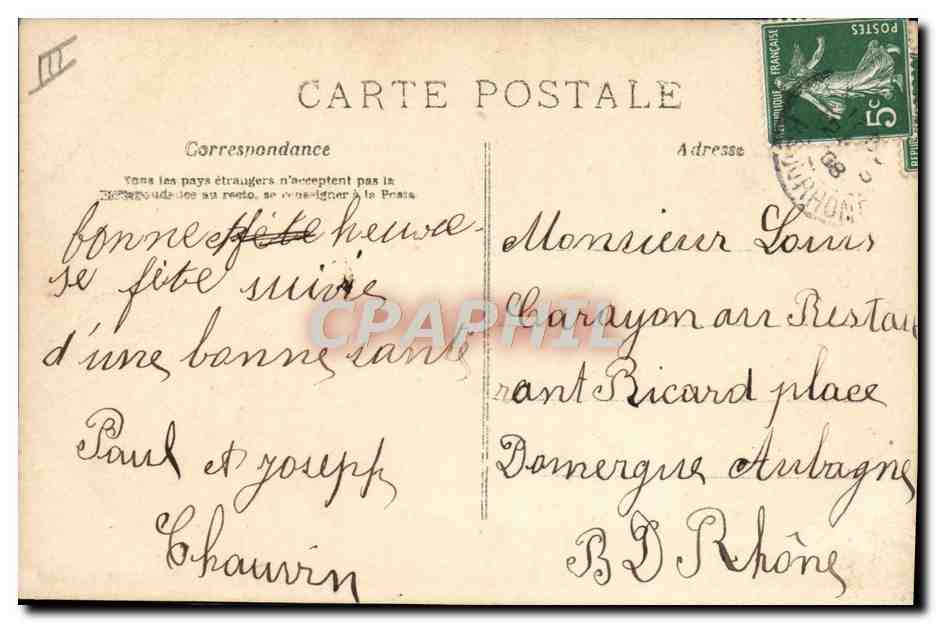 III
CARTE POSTALE
Correspondance
Tous les pays étrangers n'acceptent pas la
Correspondance au recto, se renseigner à la Poste
bonne fête heureu-
se fête suivie
d'une bonne santé
Paul et Joseph
Chauvin
Adresse
Monsieur Louis
Carayon au Restau
rant Ricard place
Domergue Aubagne
B D Rhône
RÉPUBLIQUE FRANÇAISE
POSTES
5c
08
DU RHONE
REPUB
CPAPHIL